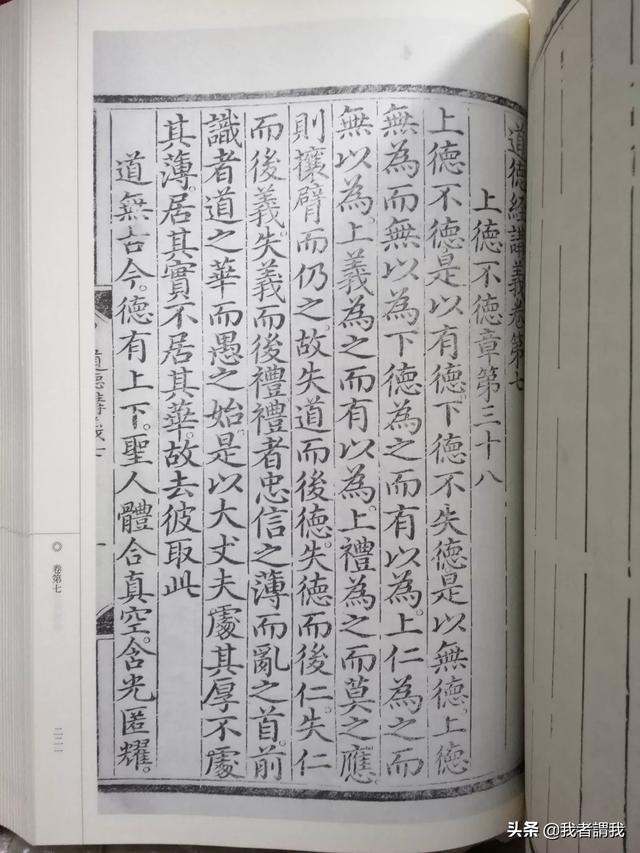 道德經講義卷第七
上德不德章第三十八
上德不德是以有德。下德不失德是以無德。上德
無為而無以為下德為之而有以為。上仁為之而
無以為。上義為之而有以為。上禮為之而莫之應
則攘臂而仍之。故失道而後德。失德而後仁。失仁
而後義。失義而後禮禮者忠信之薄而亂之首。前
識者道之華而愚之始。是以大丈夫處其厚不處
其薄。居其實不居其華。故去彼取此
道無古今。德有上下。聖人體合真空。含光匿耀。
卷第七
二二一
头条 @我者謂我